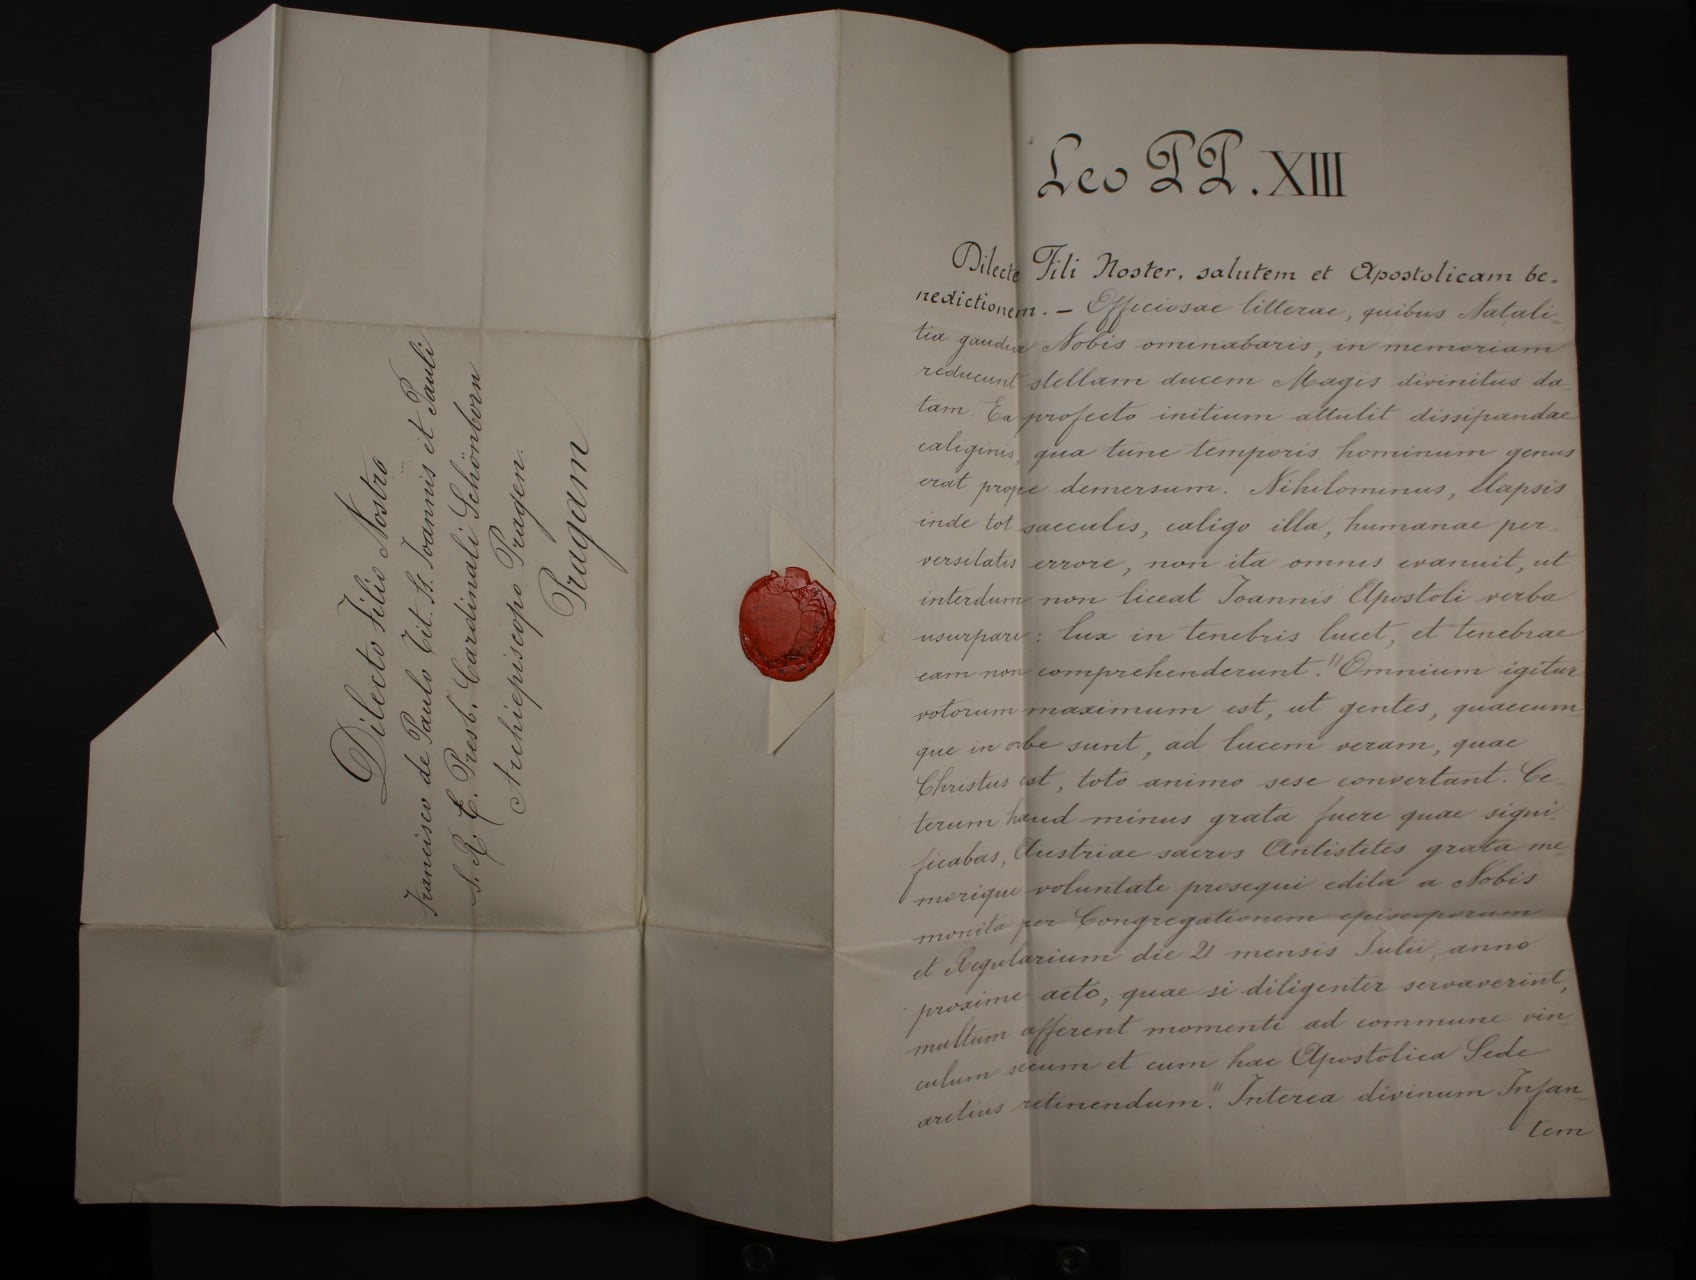 Dilecto Filio Nostro
Francisco de Paulo Tit. St. Ioannis et Pauli
S. R. E. Presb. Cardinali Schönborn
Archiepiscopo Pragen.
Pragam
Leo PP. XIII
Dilecte Fili Noster, salutem et Apostolicam be-
nedictionem. — Officiosae litterae, quibus Natali-
tia gaudia Nobis ominabaris, in memoriam
reducunt stellam ducem Magis divinitus da-
tam. Ea profecto initium attulit dissipandae
caliginis, qua tunc temporis hominum genus
erat prope demersum. Nihilominus, elapsis
inde tot saeculis, caligo illa, humanae per-
versitatis errore, non ita omnis evanuit, ut
interdum non liceat Ioannis Apostoli verba
usurpare: lux in tenebris lucet, et tenebrae
eam non comprehenderunt." Omnium igitur
votorum maximum est, ut gentes, quaecum-
que in orbe sunt, ad lucem veram, quae
Christus est, toto animo sese convertant. Ce-
terum haud minus grata fuere quae signi-
ficabas, Austriae sacros Antistites grata me-
morique voluntate prosequi edita a Nobis
monita per Congregationem episcoporum
et Regularium die 21 mensis Iulii, anno
proxime acto, quae si diligenter servaverint,
multum afferent momenti ad commune vin-
culum secum et cum hac Apostolica Sede
arctius retinendum." Interea divinum Infan-
tem